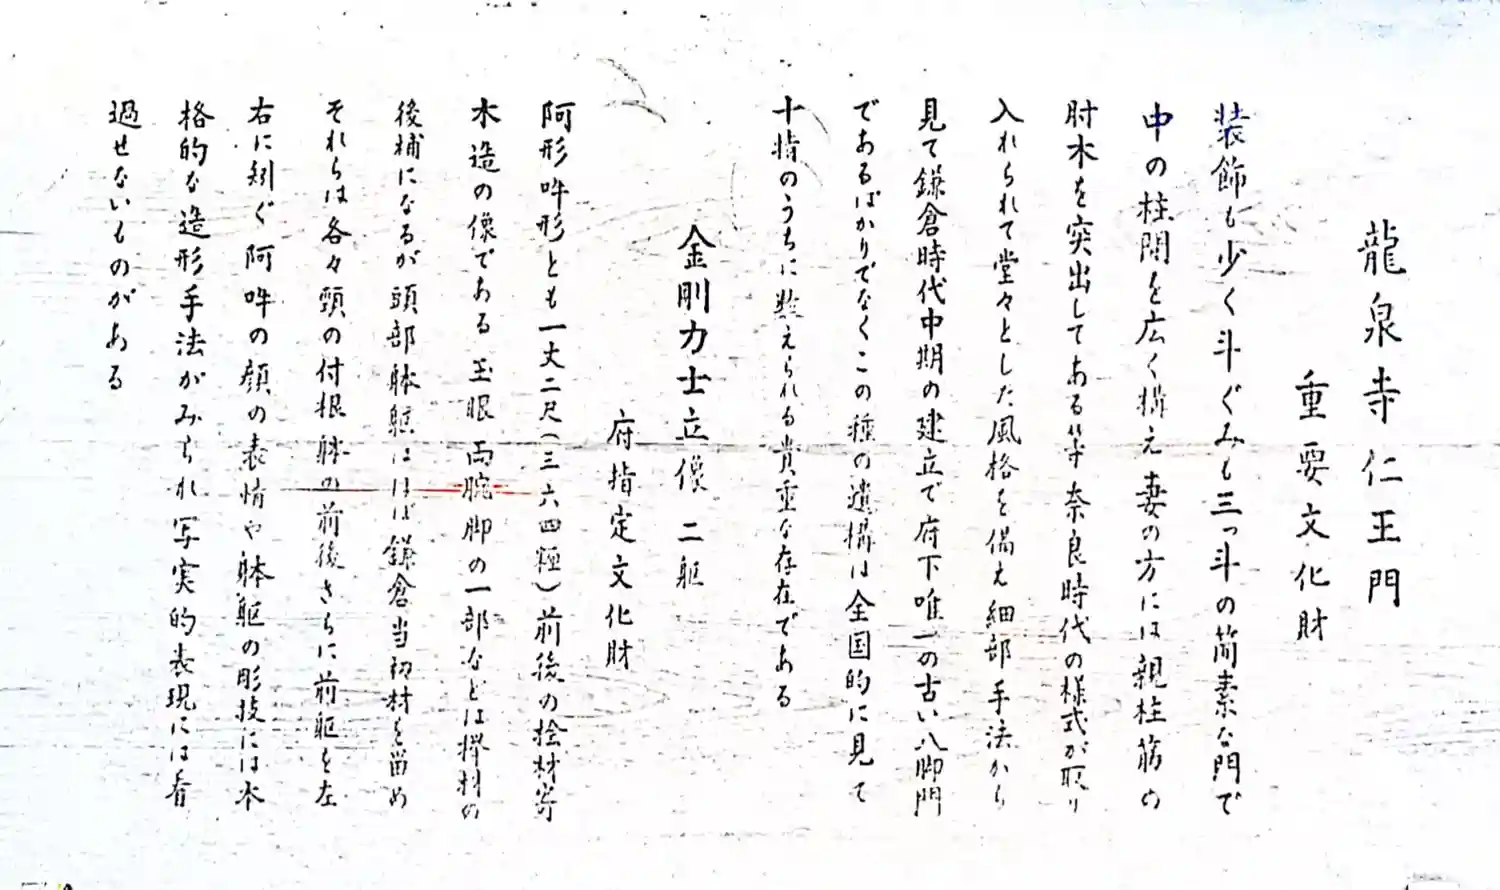 龍泉寺仁王門
重要文化財
装飾も少く斗ぐみも三っ斗の簡素な門で
中の柱間を広く構え妻の方には親柱筋の
肘木を突出してある等奈良時代の様式が取り
入れられて堂々とした風格を偈え細部手法から
見て鎌倉時代中期の建立で府下唯一の古い八脚門
であるばかりでなくこの種の遺構は全国的に見て
十指のうちに数えられる貴重な存在である
金剛力士立像 二躯
府指定文化財
阿形吽形とも一丈二尺(三六四糎)前後の桧材寄
木造の像である 玉眼 両腕 脚の一部などは欅材の
後補になるが頭部躰躯はほぼ鎌倉当初材を留め
それらは各々頸の付根躰の前後さらに前躯を左
右に矧ぐ 阿吽の顔の表情や躰躯の彫技には本
格的な造形手法がみられ写実的表現には看
過せないものがある